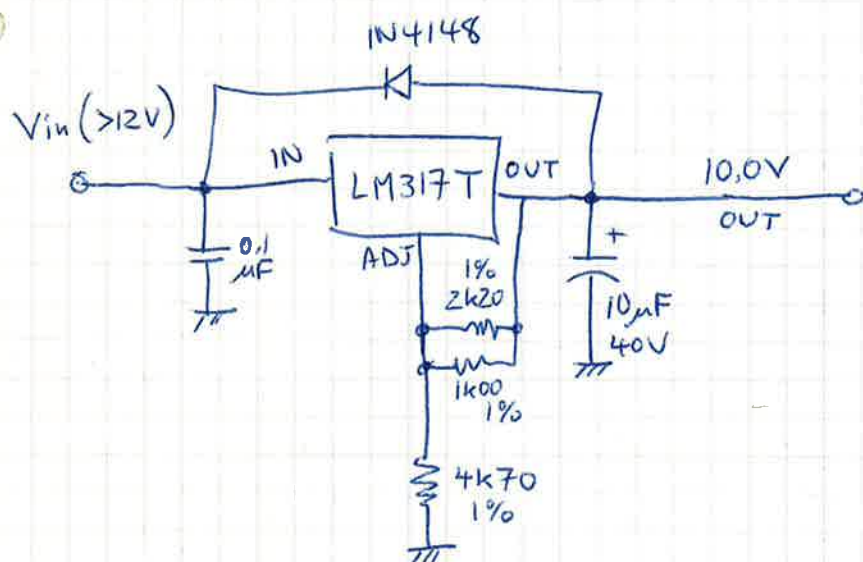 1N4148
Vin (>12V)
IN
LM317T
OUT
10,0V
OUT
0.1
µF
ADJ
1%
2k20
+
10µF
40V
1k00
1%
4k70
1%